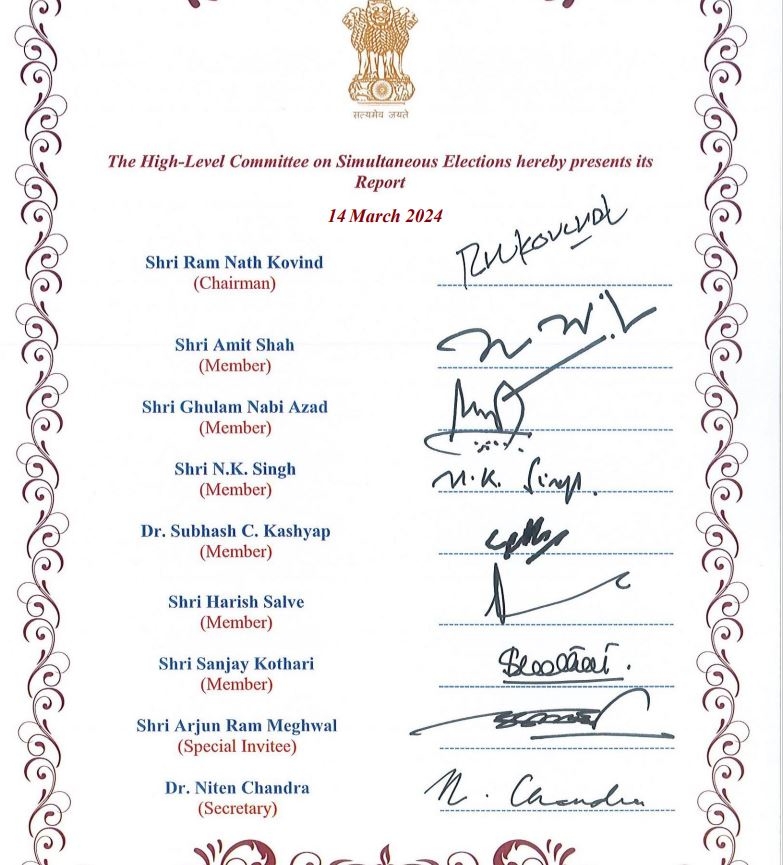 सत्यमेव जयते
The High-Level Committee on Simultaneous Elections hereby presents its
Report
14 March 2024
Shri Ram Nath Kovind
(Chairman)
RNKovind
Shri Amit Shah
(Member)
Shri Ghulam Nabi Azad
(Member)
Shri N.K. Singh
(Member)
N.K. Singh.
Dr. Subhash C. Kashyap
(Member)
Shri Harish Salve
(Member)
Shri Sanjay Kothari
(Member)
Shri Arjun Ram Meghwal
(Special Invitee)
Dr. Niten Chandra
(Secretary)
N. Chandra